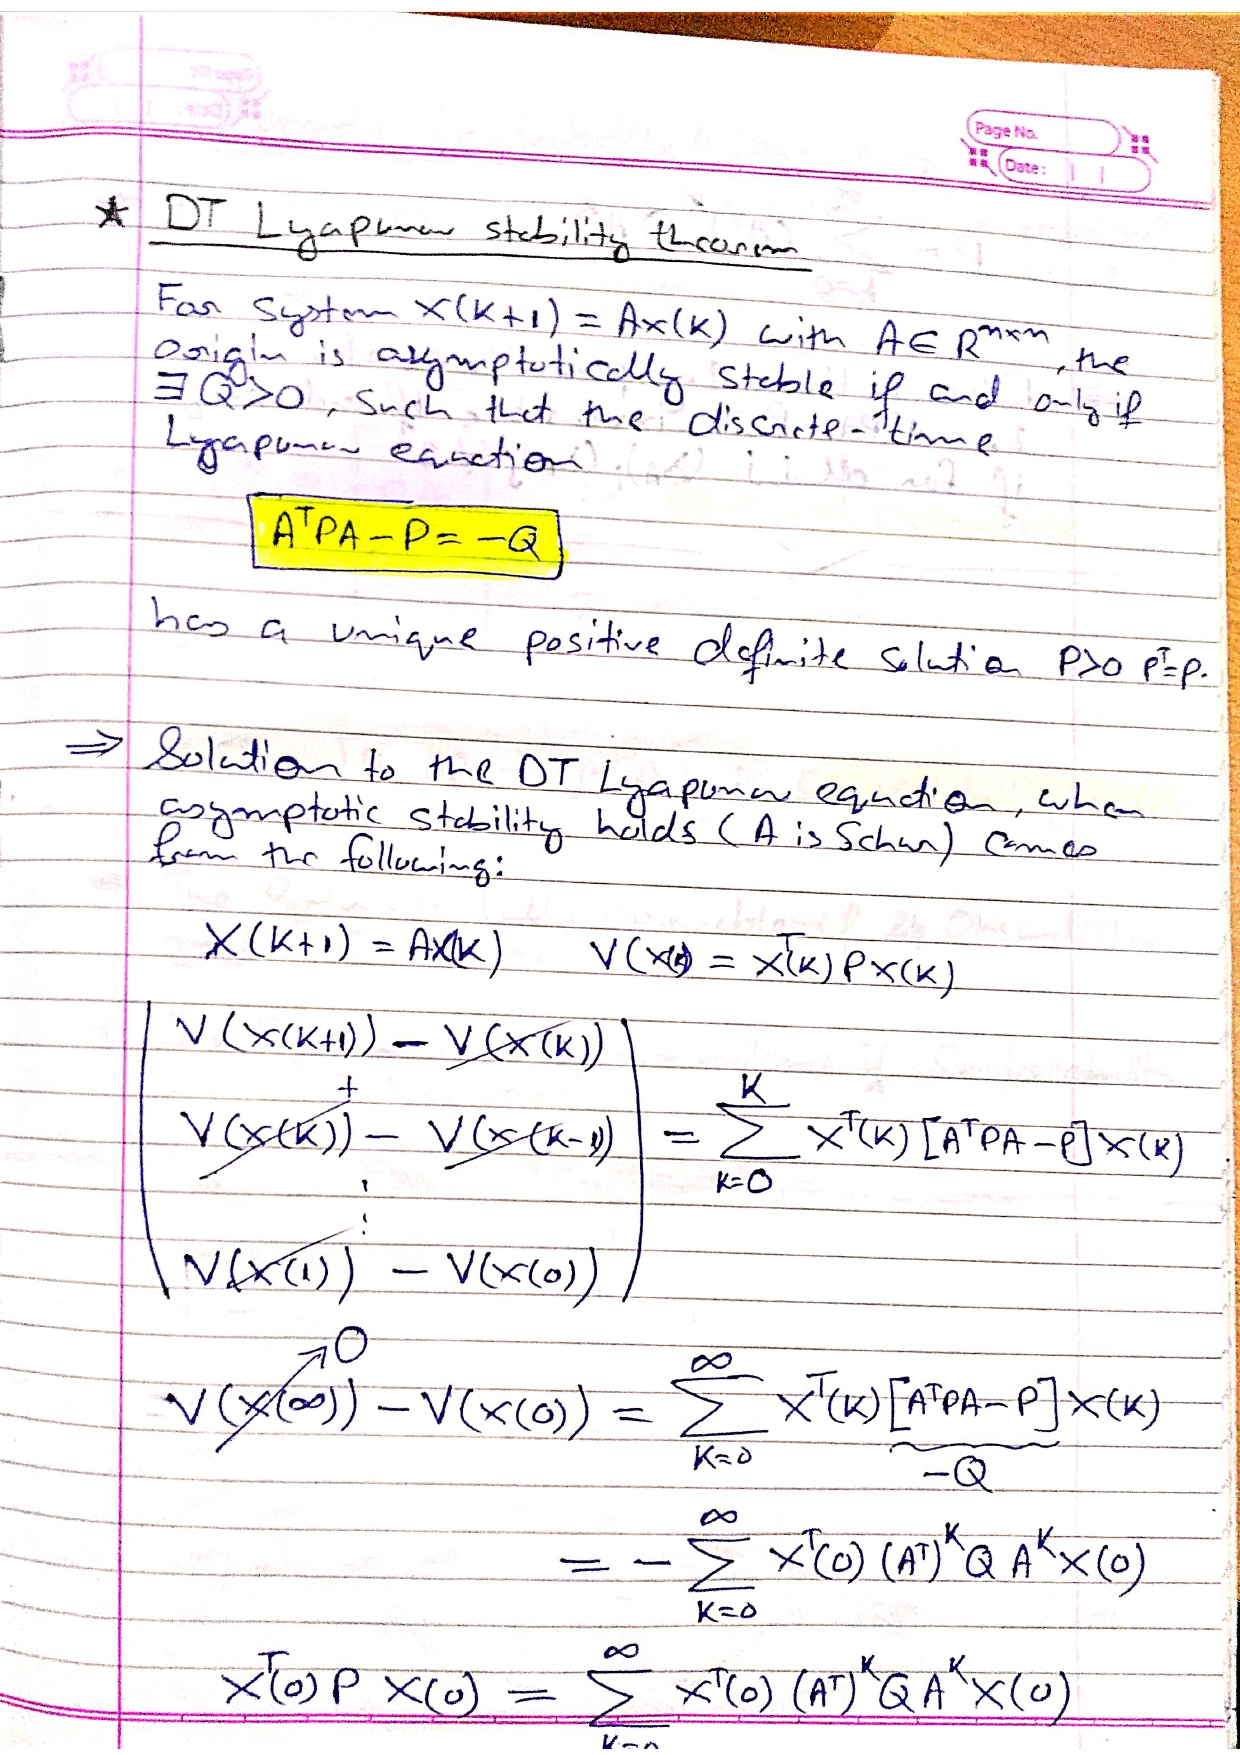 Page No.
Date:
★ DT Lyapunov stability theorem
For system x(k+1) = Ax(k) with A ∈ R^{n×n}, the
origin is asymptotically stable if and only if
∃ Q>0, such that the discrete-time
Lyapunov equation
AᵀPA − P = −Q
has a unique positive definite solution P>0 Pᵀ=P.
⇒ Solution to the DT Lyapunov equation, when
asymptotic stability holds (A is Schur) comes
from the following:
x(k+1) = Ax(k)    V(x(k)) = xᵀ(k) P x(k)
V(x(k+1)) − V(x(k))
+
V(x(k)) − V(x(k−1)) = ∑_{k=0}^{K} xᵀ(k) [AᵀPA − P] x(k)
⋮
V(x(1)) − V(x(0))
V(x(∞)) → 0 − V(x(0)) = ∑_{k=0}^{∞} xᵀ(k) [AᵀPA − P] x(k)
−Q
= − ∑_{k=0}^{∞} xᵀ(0) (Aᵀ)^k Q A^k x(0)
xᵀ(0) P x(0) = ∑_{k=0}^{∞} xᵀ(0) (Aᵀ)^k Q A^k x(0)